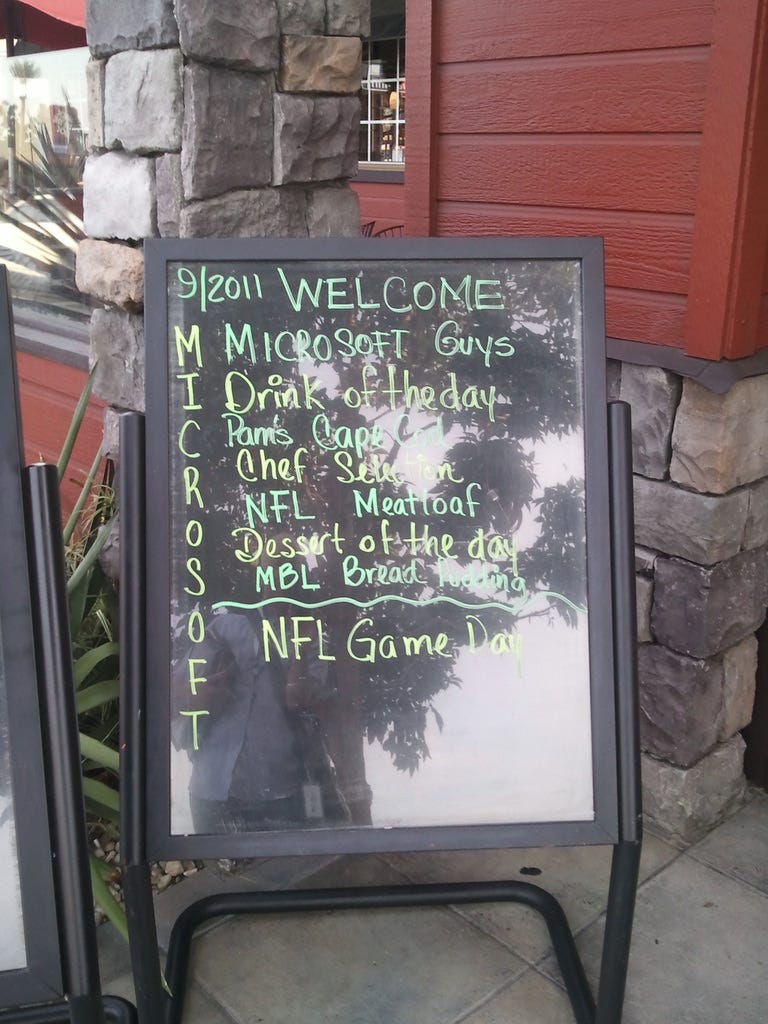 9/2011 WELCOME
MICROSOFT Guys
Drink of the day
Pam's Cape Cod
Chef Selection
NFL Meatloaf
Dessert of the day
MBL Bread Pudding
NFL Game Day
MICROSOFT